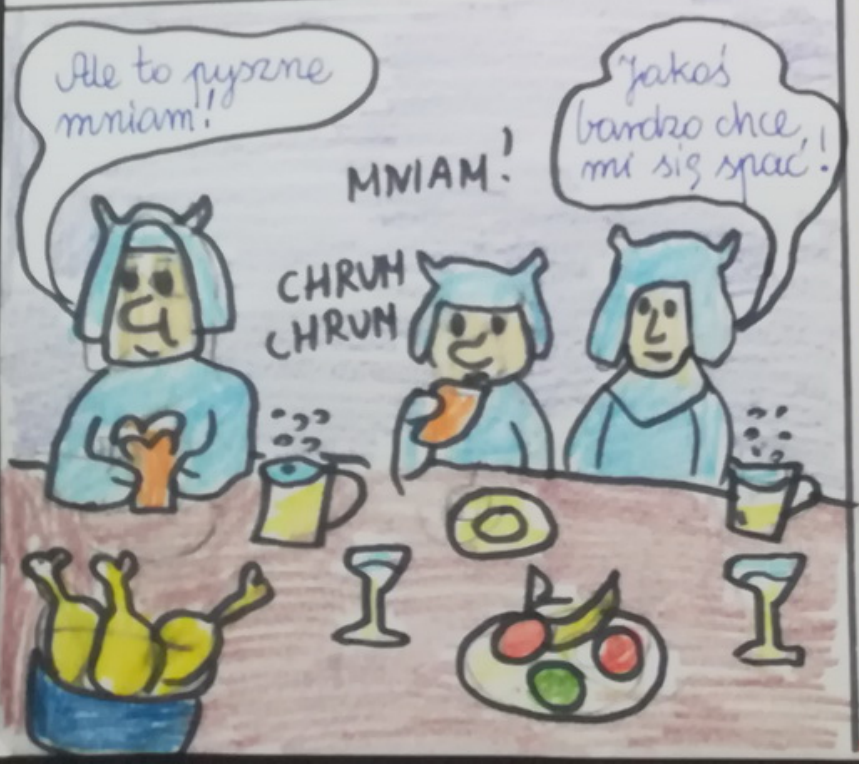 Ale to pyszne
mniam!
MNIAM!
CHRUM
CHRUM
Jakoś
bardzo chce
mi się spać!